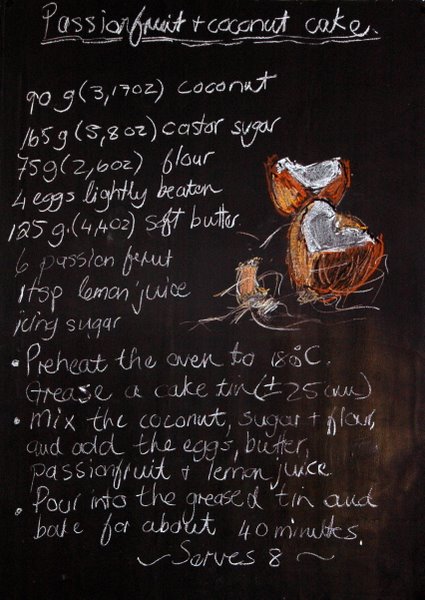 Passionfruit + coconut cake.
90 g (3,17oz) coconut
165g (5,8oz) castor sugar
75g (2,6oz) flour
4 eggs lightly beaten
125 g. (4,4oz) soft butter.
6 passion feruit
1 tsp lemon juice
icing sugar
• Preheat the oven to 180°C.
Grease a cake tin (± 25 cm)
• Mix the coconut, sugar + flour,
and add the eggs, butter,
passionfruit + lemon juice
• Pour into the greased tin and
bake for about 40 minutes.
~ Serves 8 ~